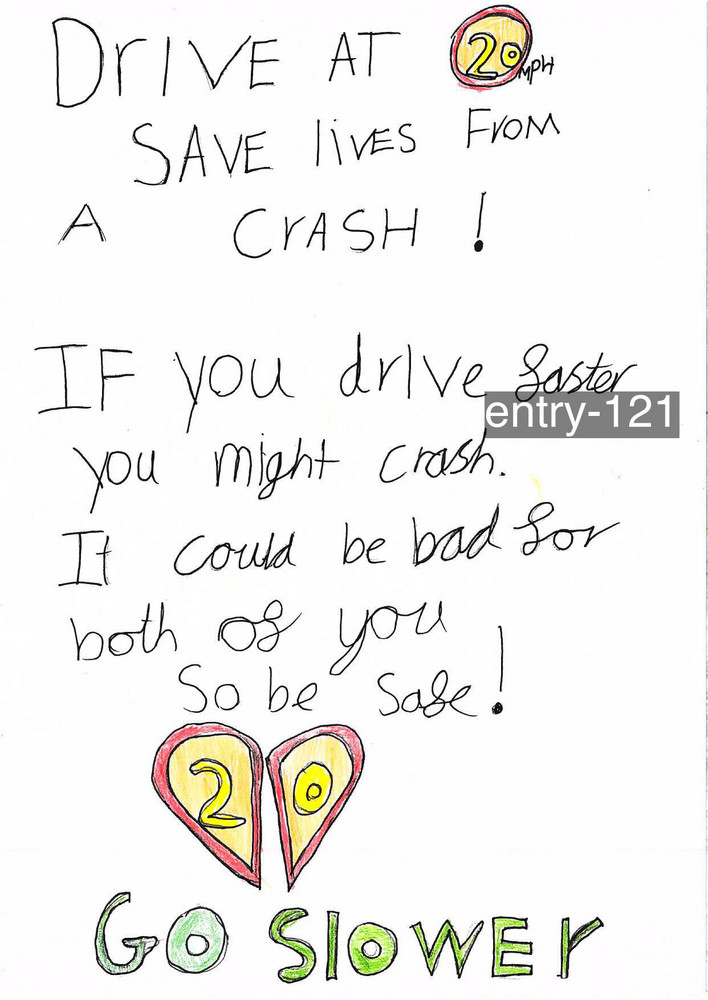 DrIVE AT 20 MPH
SAVE lIVES FrOM
A CrASH !
IF you drIve faster
entry-121
you might crash.
It could be bad for
both of you
So be Safe!
2 0
GO SlOWEr